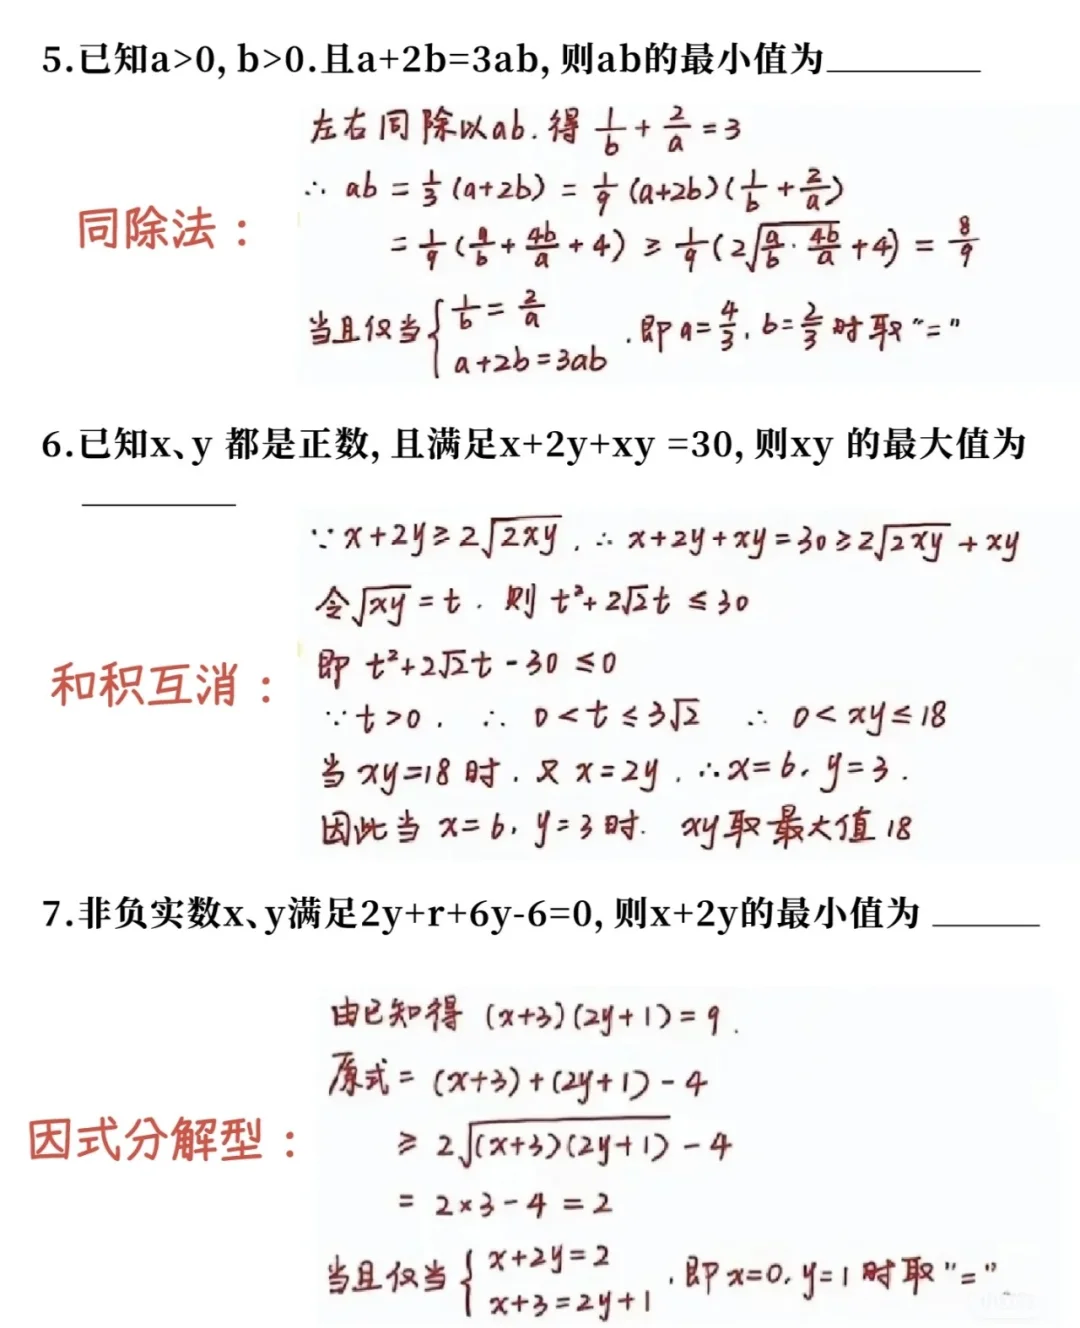 5.已知a>0, b>0.且a+2b=3ab, 则ab的最小值为________
左右同除以ab.得 1/b + 2/a = 3
∴ ab = 1/3 (a+2b) = 1/9 (a+2b)(1/b + 2/a)
同除法：
= 1/9 (a/b + 4b/a + 4) ≥ 1/9 (2√(a/b · 4b/a) + 4) = 8/9
当且仅当 { 1/b = 2/a
a+2b=3ab .即 a=4/3, b=2/3 时取"="
6.已知x、y 都是正数, 且满足x+2y+xy =30, 则xy 的最大值为
________
∵ x+2y ≥ 2√(2xy) , ∴ x+2y+xy=30 ≥ 2√(2xy) + xy
令√(xy) = t . 则 t²+2√2t ≤ 30
和积互消：
即 t²+2√2t - 30 ≤ 0
∵ t>0 , ∴ 0<t≤3√2 ∴ 0<xy≤18
当 xy=18 时 , 又 x=2y , ∴x=6, y=3 .
因此当 x=6, y=3时. xy取最大值18
7.非负实数x、y满足2y+r+6y-6=0, 则x+2y的最小值为 ______
由已知得 (x+3)(2y+1)=9 .
原式= (x+3)+(2y+1)-4
因式分解型：
≥ 2√((x+3)(2y+1)) - 4
= 2×3-4 = 2
当且仅当 { x+2y=2
x+3=2y+1 , 即x=0, y=1时取"="